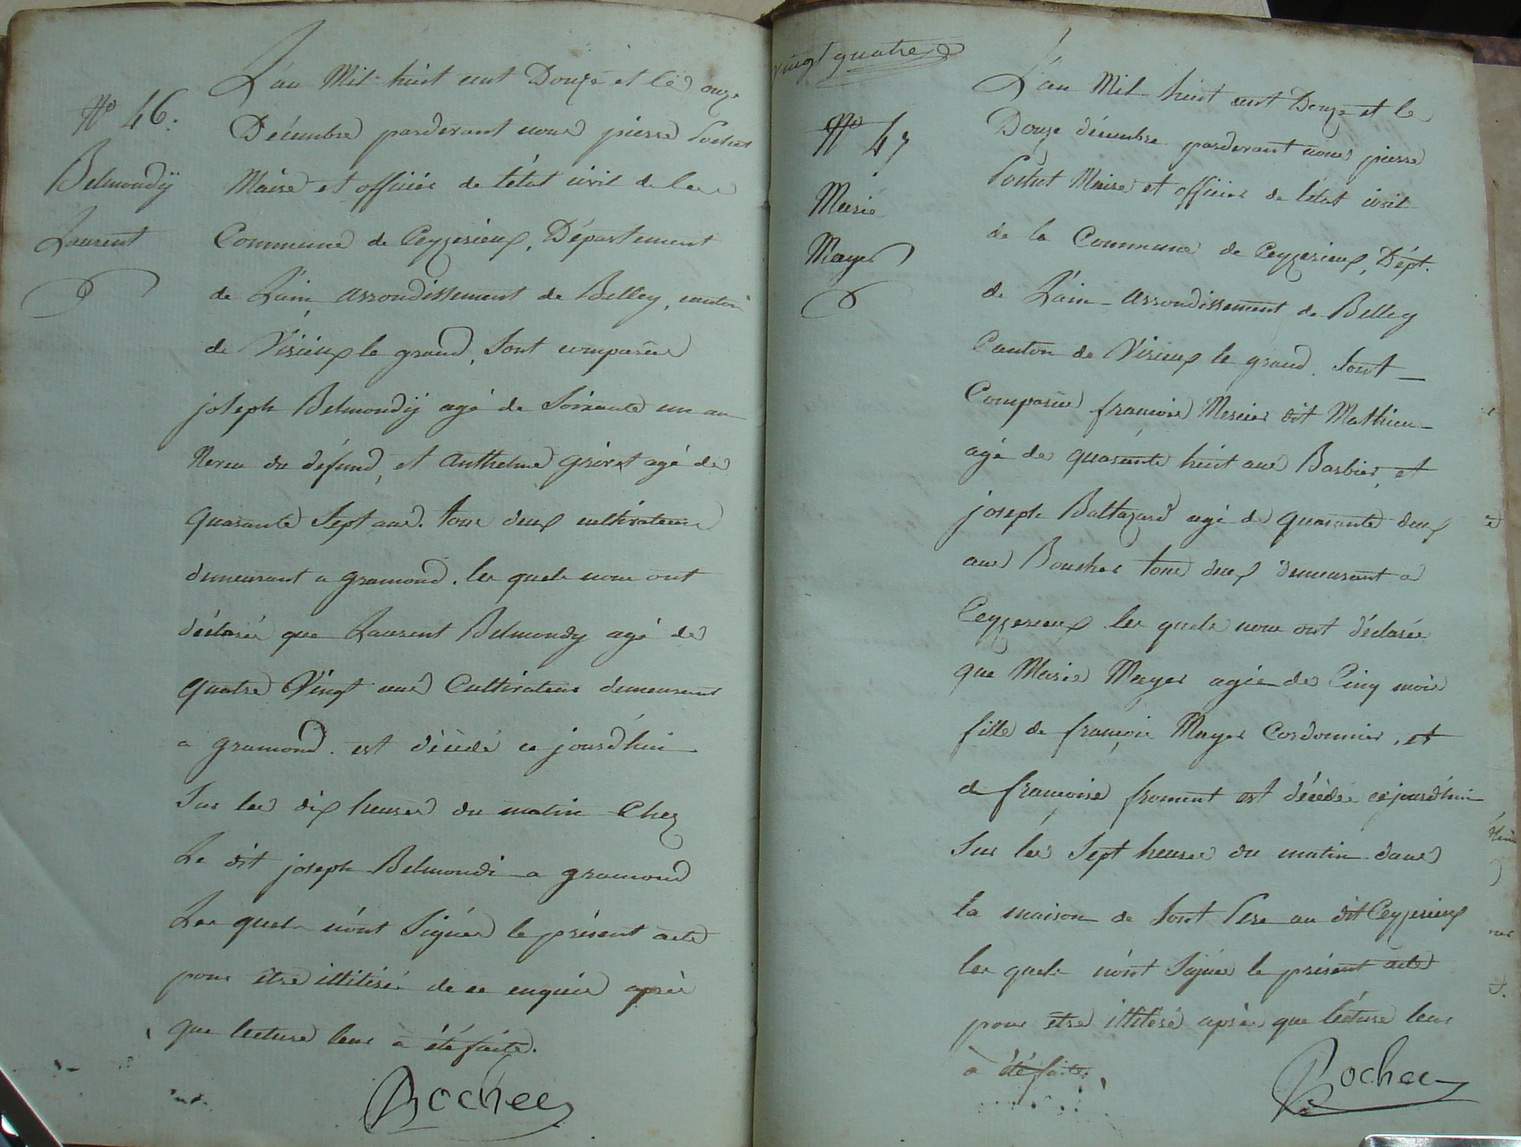 N.o 46.
Belmondÿ
Laurent
L'an Mil huit cent Douze et le onze
Décembre pardevant nous pierre Pochet
Maire et officier de l'état civil de la
Commune de Ceyzerieux, Département
de L'ain, arrondissement de Belley, canton
de Virieux le grand, Sont comparus
joseph Belmondÿ agé de Soixante un an
Neveu du défund, et anthelme grivet agé de
quarante Sept ans. tous deux cultivateurs
demeurant a gramond. les quels nous ont
déclarés que Laurent Belmondy agé de
quatre Vingt ans Cultivateur demeurant
a gramond. est décédé ce jourd'hui
Sur les dix heures du matin Chez
Le dit joseph Belmondi a gramond
Les quels n'ont Signés le présent acte
pour être illitéré de ce enquis après
que lecture leur à été faite.
Rochet
vingt quatre
N.o 47
Marie
Mayer
L'an Mil huit cent Douze et le
Douze décembre pardevant nous pierre
Pochet Maire et officier de l'état civil
de la Commune de Ceyzerieux, Dépt.
de L'ain arrondissement de Belley
Canton de Virieux le grand. Sont
Comparus francois Mercier dit Mathieu
agé de quarante huit ans Barbier, et
joseph Baltazard agé de quarante deux
ans Boucher tous deux demeurant a
Ceyzerieux les quels nous ont déclarés
que Marie Mayer agée de Cinq mois
fille de françois Mayer Cordonnier, et
de francoise froment est décédée cejourd'hui
Sur les Sept heures du matin dans
la maison de Sont Pere au dit Ceyzerieux
les quels n'ont Signés le présent acte
pour être illitéré après que lécture leur
à été faite.
Rochet